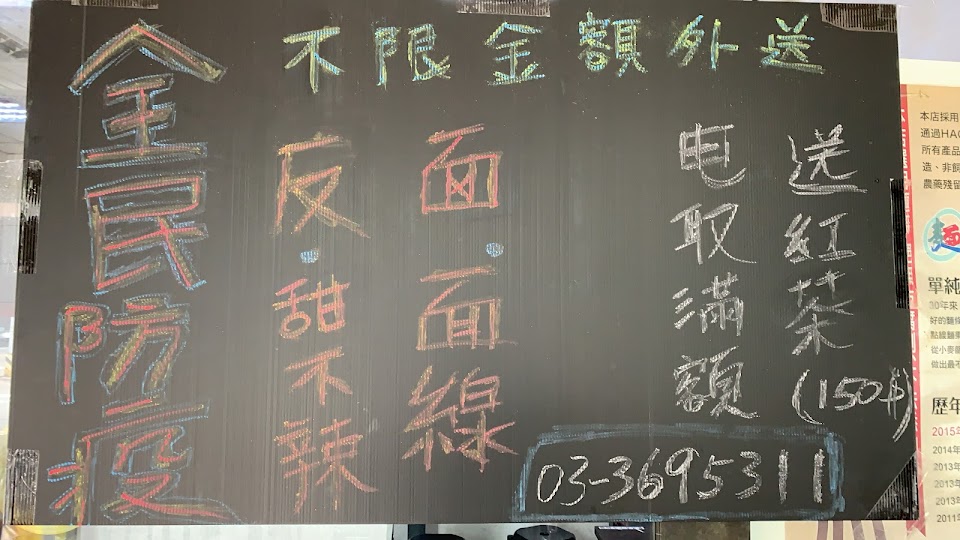 全民防疫
不限金額外送
反·甜不辣
面·面線
电取滿額
送紅茶(150)
03-3695311
本店採用
通過HAC
所有產品
造、非飼
農藥殘留
麵
單純
30年來
好的麵條
從小麥
做出最不
歷年
2015年
2014年
2013年
2013年
2013年
2011年